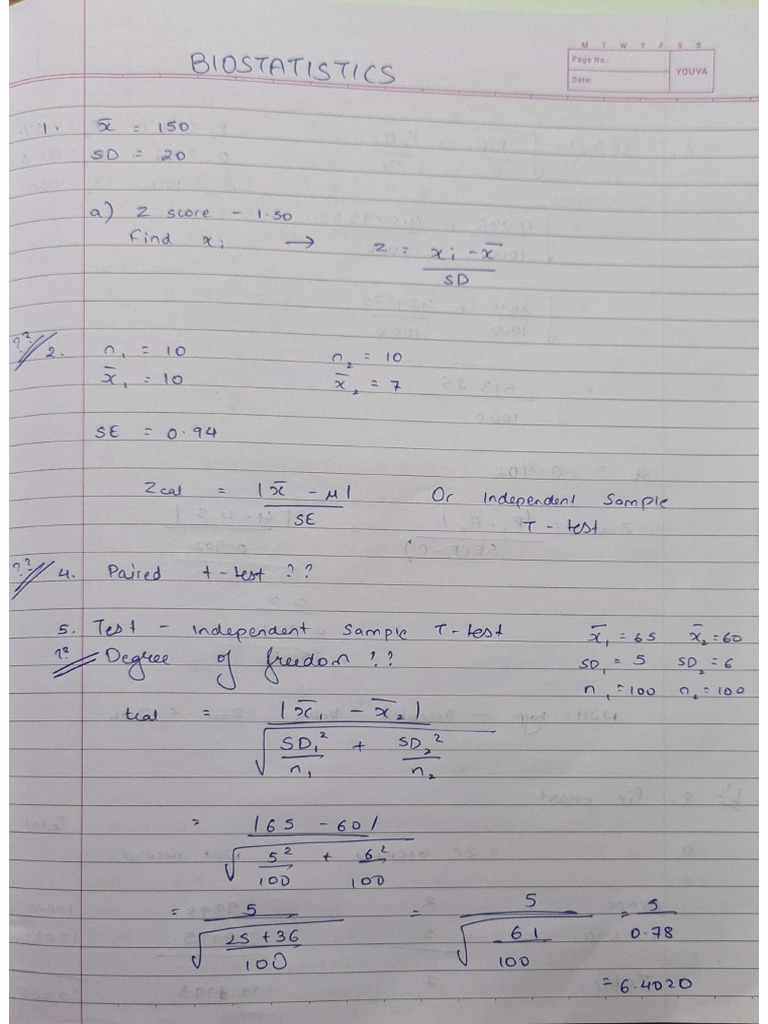 BIOSTATISTICS
M T W T F S S
Page No.:
Date:
YOUVA
1. x̄ = 150
SD = 20
a) Z score - 1.50
Find xᵢ → z = xᵢ - x̄ / SD
?? 2. n₁ = 10 n₂ = 10
x̄₁ = 10 x̄₂ = 7
SE = 0.94
Zcal = |x̄ - μ| / SE Or Independent Sample
T - test
?? 4. Paired t-test ??
5. Test - Independent Sample T-test x̄₁ = 65 x̄₂ = 60
?? Degree of freedom ?? SD₁ = 5 SD₂ = 6
n₁ = 100 n₂ = 100
tcal = |x̄₁ - x̄₂| / √(SD₁²/n₁ + SD₂²/n₂)
= |65 - 60| / √(5²/100 + 6²/100)
= 5 / √(25+36/100) = 5 / √(61/100) = 5 / 0.78
= 6.4020